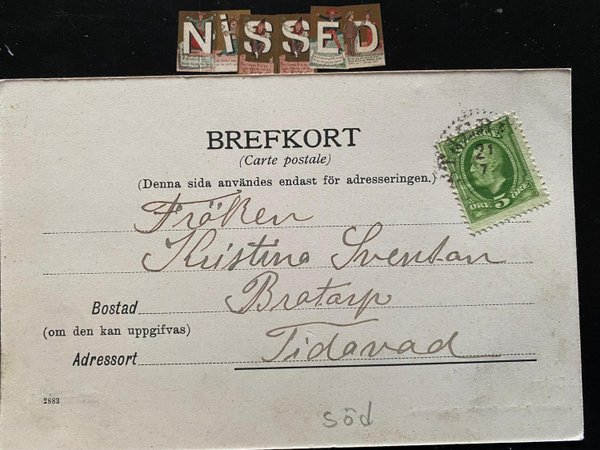 NiSSED
BREFKORT
(Carte postale)
(Denna sida användes endast för adresseringen.)
21
7
ÖRE 5 ÖRE
Fröken
Kristina Svensan
Bostad Bratarp
(om den kan uppgifvas)
Adressort Tidavad
2883
söd